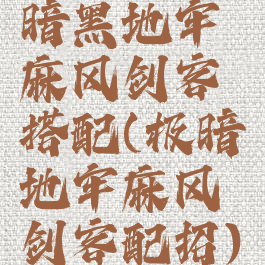 暗黑地牢
麻风剑客
搭配(极暗
地牢麻风
剑客配招)